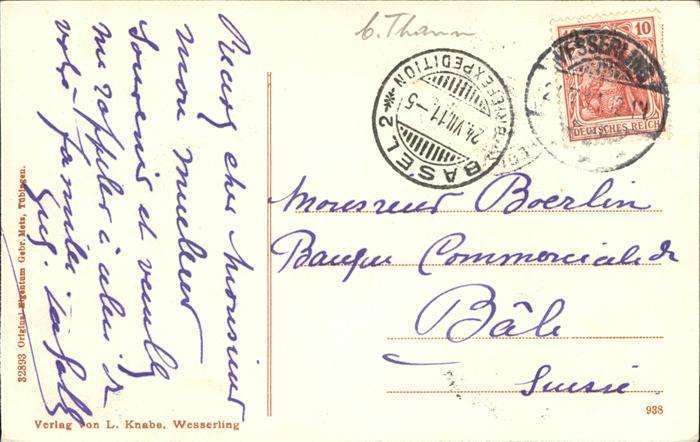 b. Thann
10
DEUTSCHES REICH
WESSERLING
BASEL 2
24.VII.11.-5
BRIEFEXPEDITION
cher Monsieur
mon meilleur
Souvenir et veuillez
me rappeler à celui de
votre famille
Monsieur Boerlin
Banque Commerciale de
Bâle
Suisse
938
Verlag von L. Knabe, Wesserling
32893 Original Eigentum Gebr. Metz, Tübingen.